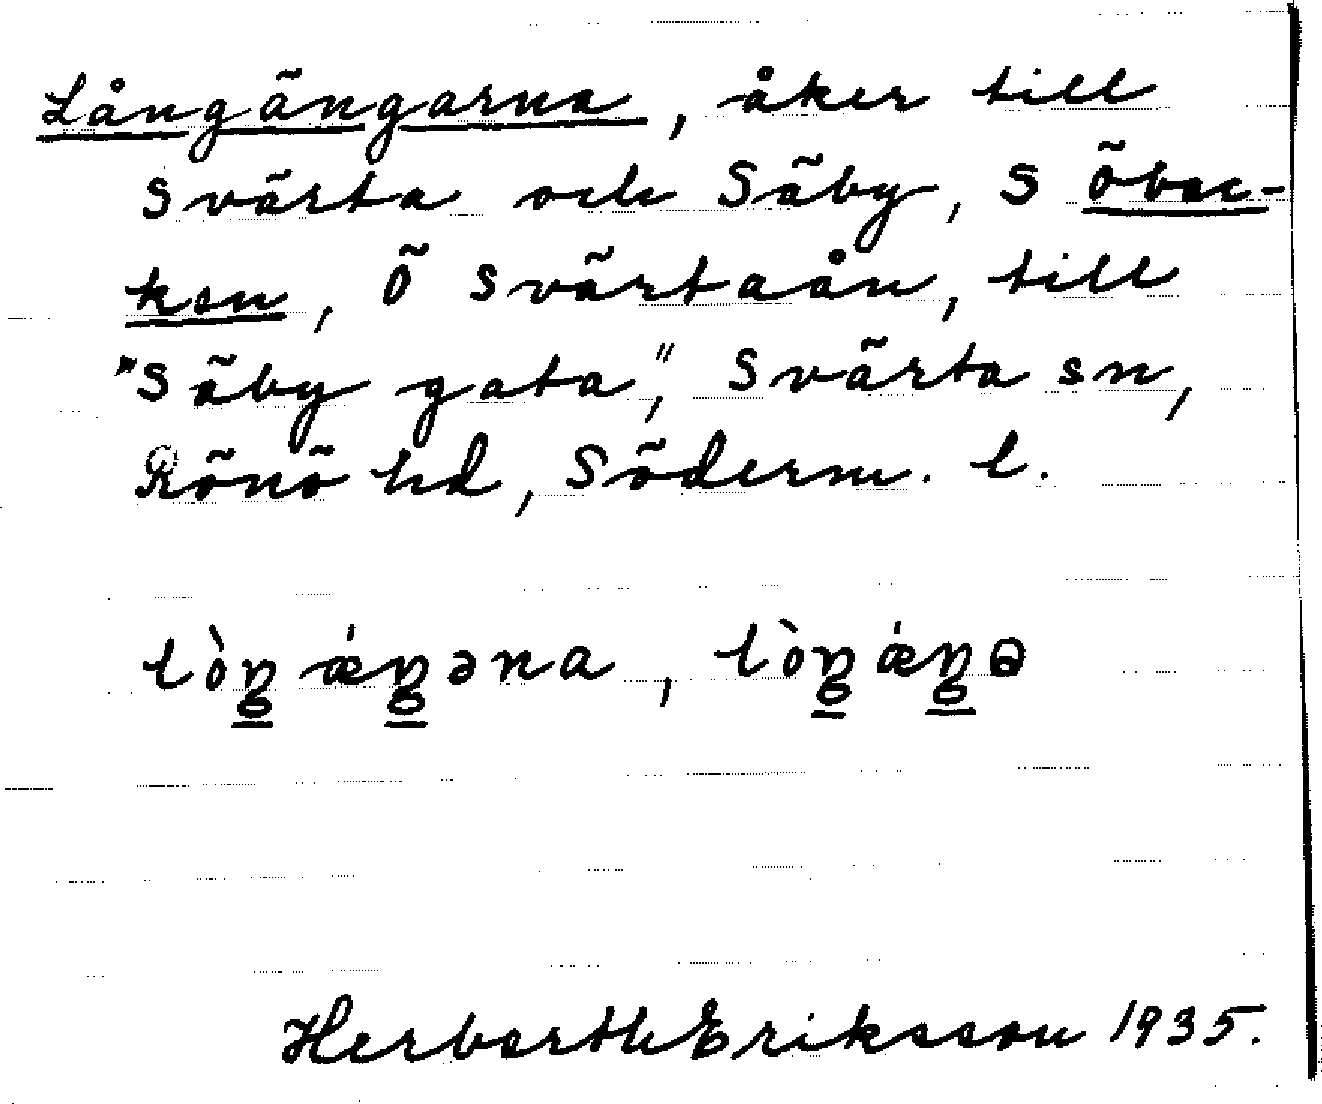 Långängarna, åker till
Svärta och Säby, S Öbac-
ken, Ö Svärtaån, till
"Säby gata", Svärta sn,
Rönö hd, Söderm. l.
lòŋ ǽŋəna, lòŋǽŋə
Herberth Eriksson 1935.